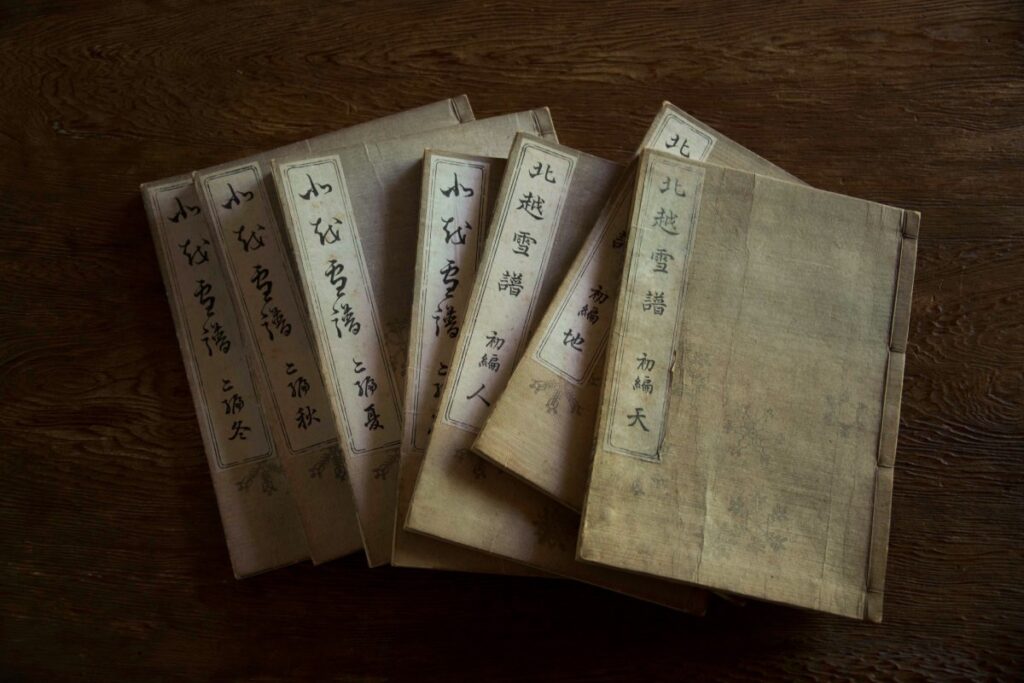 北越雪譜 初編 天
北 初編 地
北越雪譜 初編 人
北越雪譜 二
北越雪譜 二編 夏
北越雪譜 二編 秋
北越雪譜 二編 冬